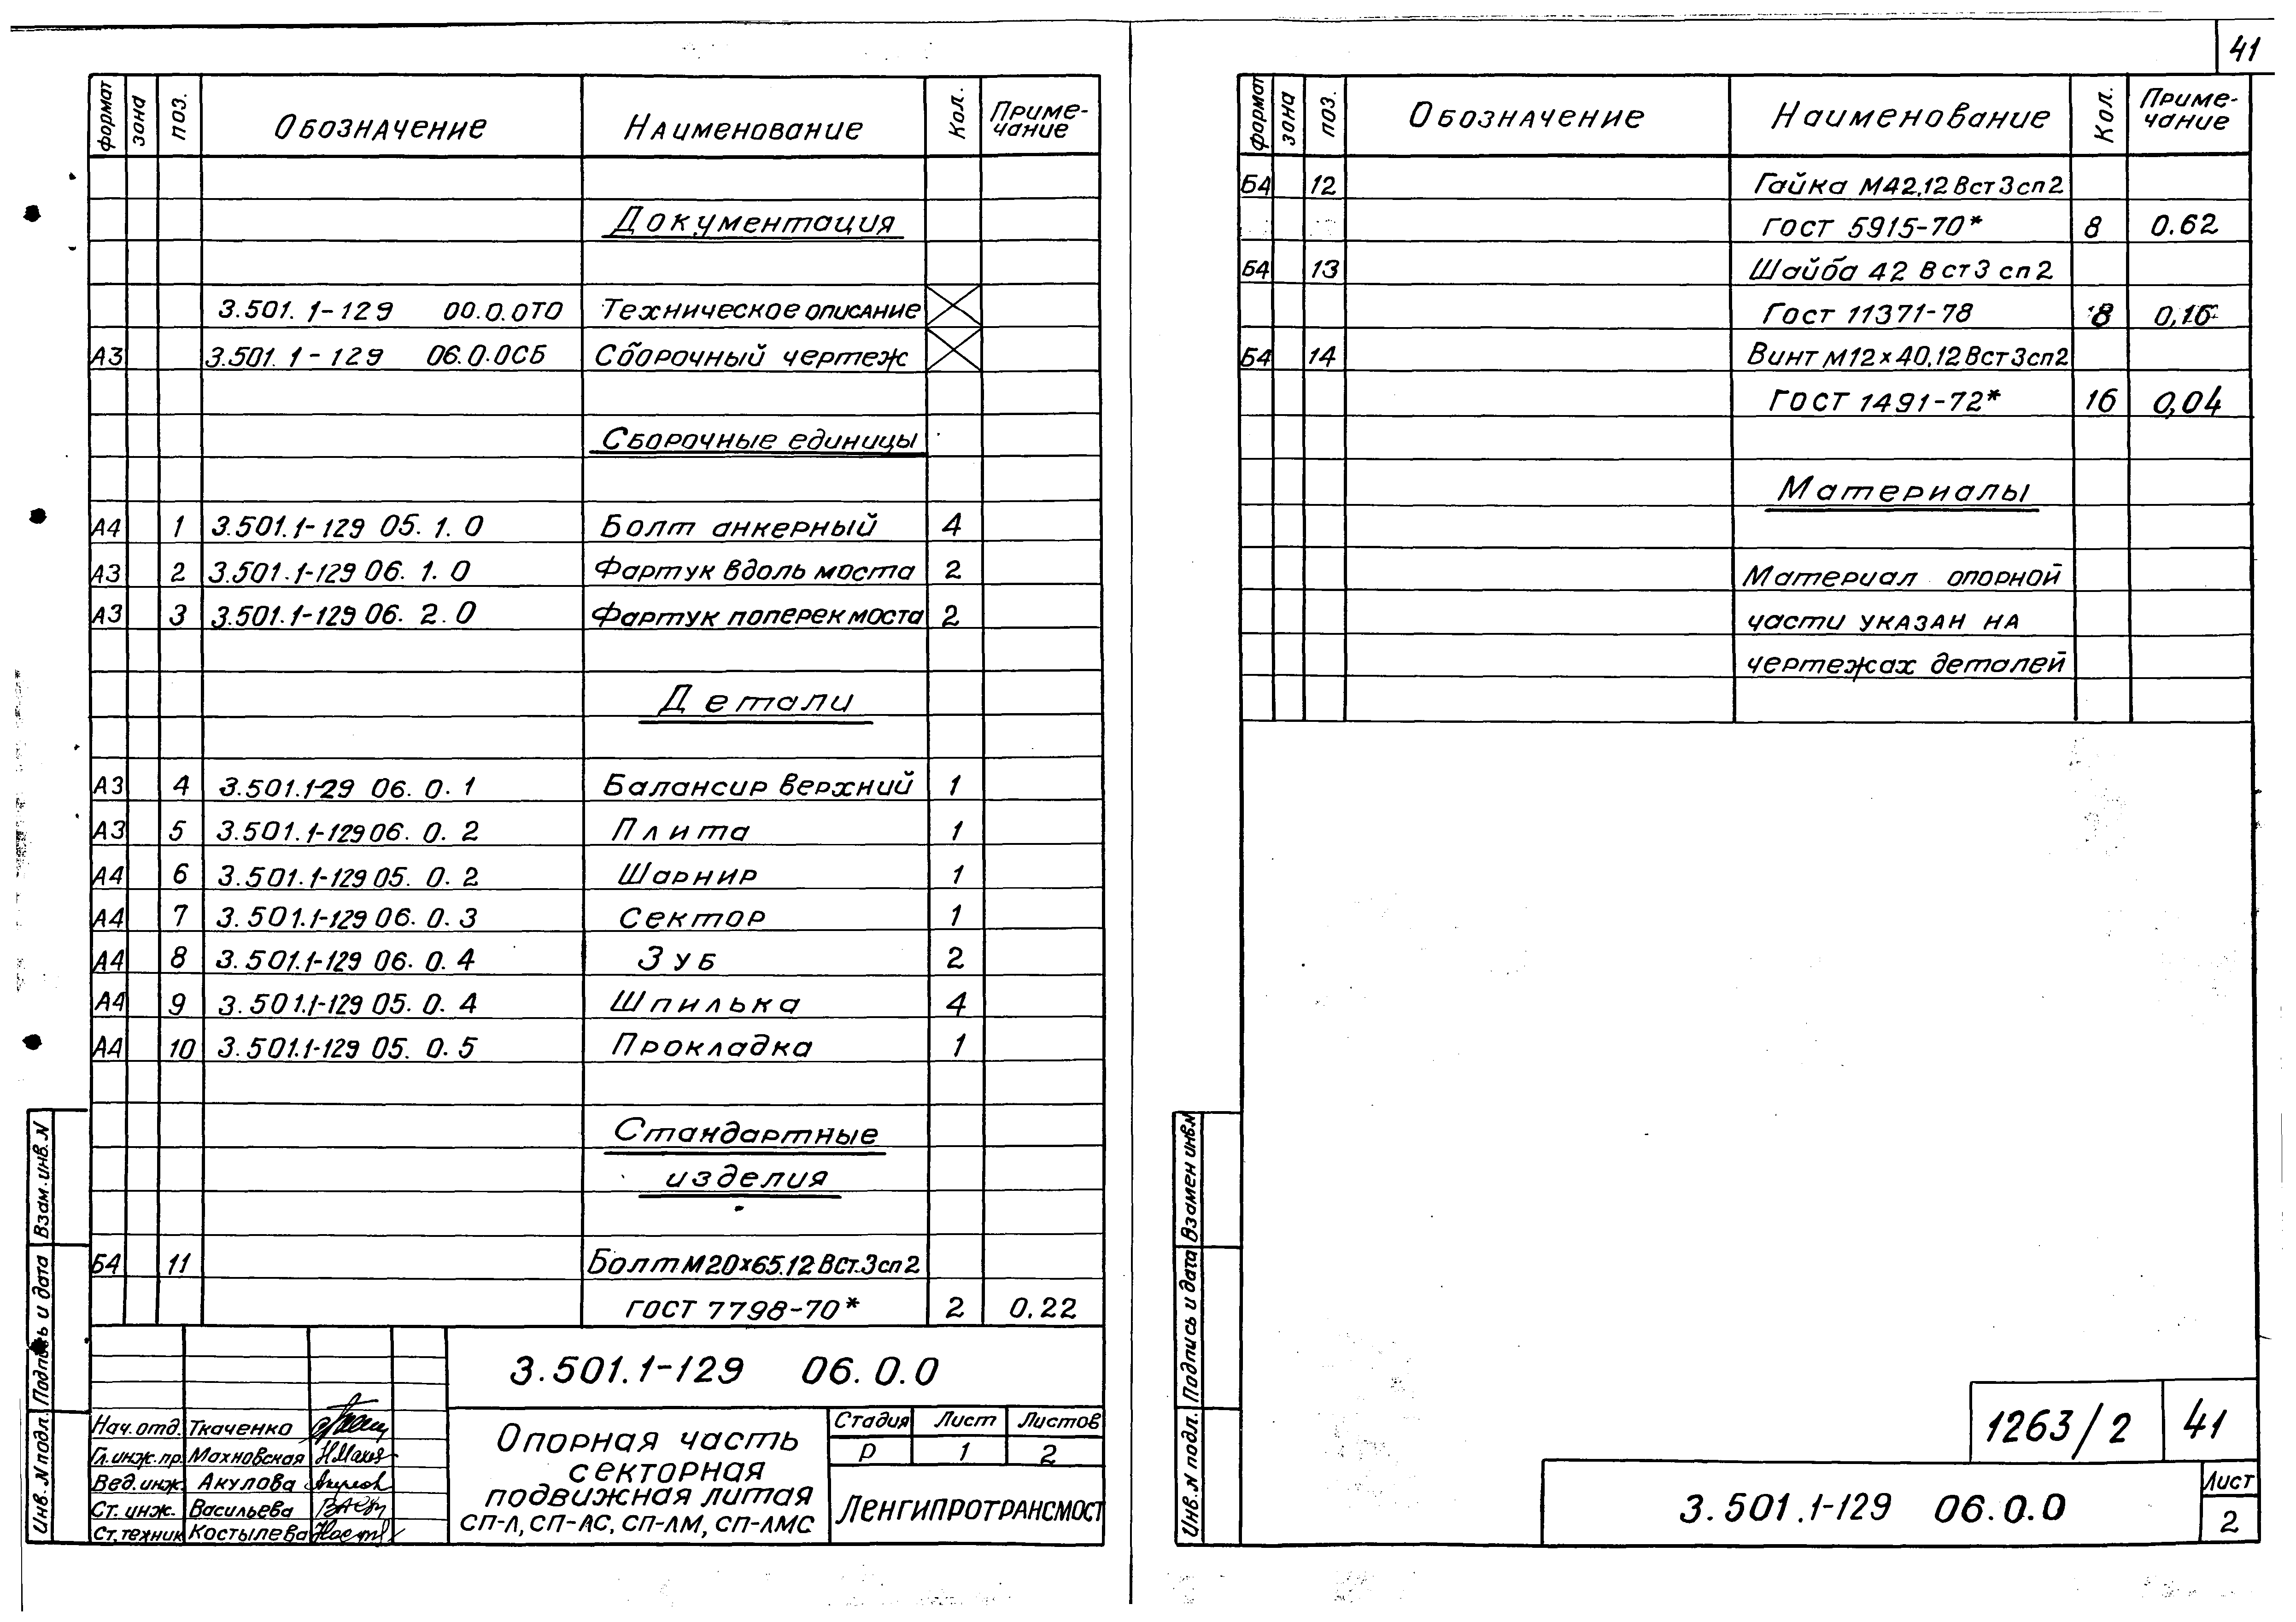 41
формат зона поз. Обозначение Наименование Кол. Приме-
чание
Документация
3.501.1-129 00.0.0ТО Техническое описание
А3 3.501.1-129 06.0.0СБ Сборочный чертеж
Сборочные единицы
А4 1 3.501.1-129 05.1.0 Болт анкерный 4
А3 2 3.501.1-129 06.1.0 Фартук вдоль моста 2
А3 3 3.501.1-129 06.2.0 Фартук поперек моста 2
Детали
А3 4 3.501.1-29 06.0.1 Балансир верхний 1
А3 5 3.501.1-129 06.0.2 Плита 1
А4 6 3.501.1-129 05.0.2 Шарнир 1
А4 7 3.501.1-129 06.0.3 Сектор 1
А4 8 3.501.1-129 06.0.4 Зуб 2
А4 9 3.501.1-129 05.0.4 Шпилька 4
А4 10 3.501.1-129 05.0.5 Прокладка 1
Стандартные
изделия
Б4 11 Болт М20х65.12 Вст.3сп2
ГОСТ 7798-70* 2 0.22
3.501.1-129 06.0.0
Нач.отд. Ткаченко
Гл.инж.пр. Махновская
Вед.инж. Акулова
Ст. инж. Васильева
Ст.техник Костылева
Опорная часть
секторная
подвижная литая
СП-Л, СП-ЛС, СП-ЛМ, СП-ЛМС
Стадия Лист Листов
Р 1 2
Ленгипротрансмост
Инв.N подл. Подпись и дата Взам.инв.N
формат зона поз. Обозначение Наименование Кол. Приме-
чание
Б4 12 Гайка М42.12 Вст3сп2
ГОСТ 5915-70* 8 0.62
Б4 13 Шайба 42 Вст3 сп2
Гост 11371-78 8 0,16
Б4 14 Винт М12х40.12 Вст3сп2
ГОСТ 1491-72* 16 0,04
Материалы
Материал опорной
части указан на
чертежах деталей
Инв.N подл. Подпись и дата Взамен инв.N
1263/2 41
3.501.1-129 06.0.0
Лист
2